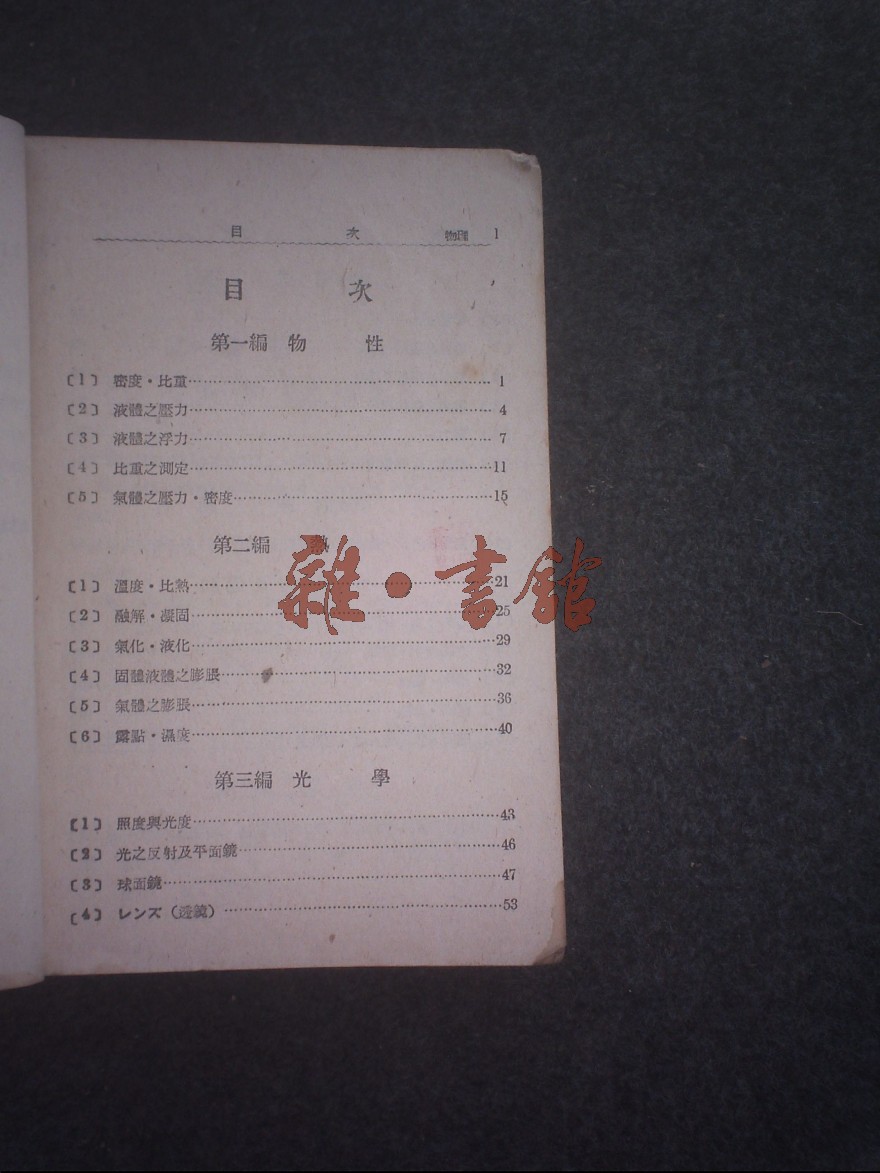 目 次 物理 1
目 次
第一編 物 性
〔1〕 密度・比重 1
〔2〕 液體之壓力 4
〔3〕 液體之浮力 7
〔4〕 比重之測定 11
〔5〕 氣體之壓力・密度 15
第二編 熱
〔1〕 溫度・比熱 21
〔2〕 融解・凝固 25
〔3〕 氣化・液化 29
〔4〕 固體液體之膨脹 32
〔5〕 氣體之膨脹 36
〔6〕 露點・濕度 40
雜・書館
第三編 光 學
〔1〕 照度與光度 43
〔2〕 光之反射及平面鏡 46
〔3〕 球面鏡 47
〔4〕 レンズ(透鏡) 53